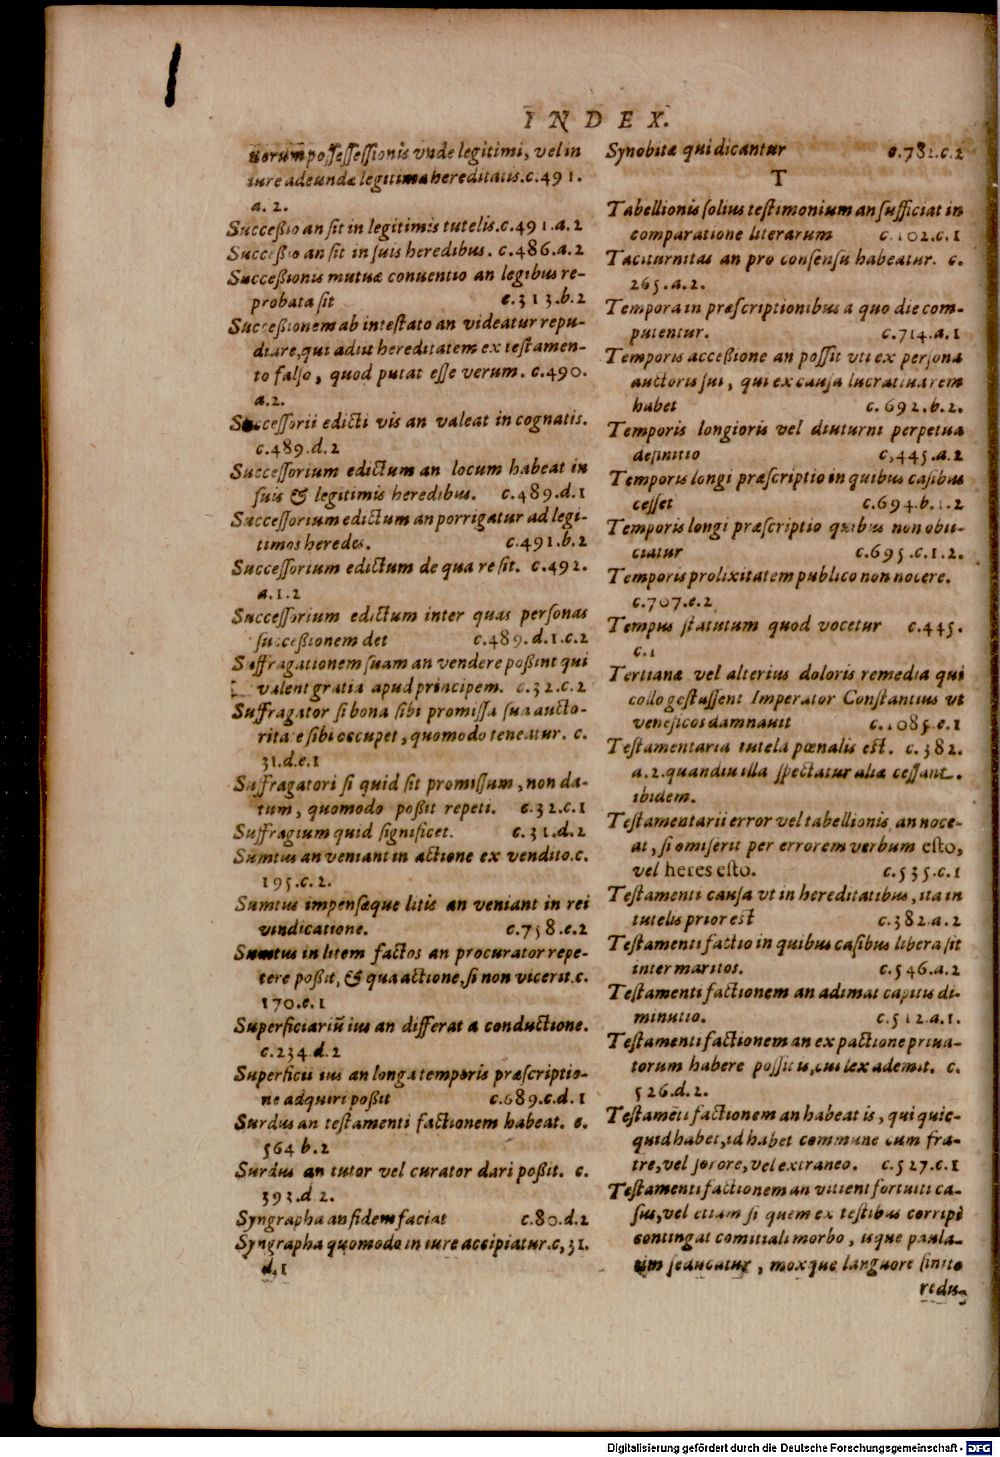 INDEX.
norum possessessionis vnde legitimi, vel in
iure adeundæ legitima hereditatis.c.491.
a.2.
Succeßio an ſit in legitimis tutelis.c.491.a.2
Succeßio an ſit in ſuis heredibus. c.486.a.2
Succeßionis mutuæ conuentio an legibus re-
probata ſit c.313.b.2
Succeßionem ab inteſtato an videatur repu-
diare, qui adiit hereditatem ex teſtamen-
to falſo, quod putat eſſe verum. c.490.
a.2.
Succeſſorii edicti vis an valeat in cognatis.
c.489.d.2
Succeſſorium edictum an locum habeat in
ſuis & legitimis heredibus. c.489.d.1
Succeſſorium edictum an porrigatur ad legi-
timos heredes. c.491.b.2
Succeſſorium edictum de qua re ſit. c.492.
a.1.2
Succeſſorium edictum inter quas perſonas
ſucceßionem det c.489.d.1.c.2
Suffragationem ſuam an vendere poßint qui
valent gratia apud principem. c.32.c.2
Suffragator ſi bona ſibi promiſſa ſua aucto-
ritate ſibi occupet, quomodo teneatur. c.
31.d.e.1
Suffragatori ſi quid ſit promiſſum, non da-
tum, quomodo poßit repeti. c.32.c.1
Suffragium quid ſignificet. c.31.d.2
Sumtus an veniant in actione ex vendito.c.
195.c.2.
Sumtus impenſæque litis an veniant in rei
vindicatione. c.758.e.2
Sumtus in litem factos an procurator repe-
tere poßit, & qua actione, ſi non vicerit.c.
170.e.1
Superficiariū ius an differat a conductione.
c.234.d.2
Superficii ius an longa temporis præſcriptio-
ne adquiri poßit c.689.c.d.1
Surdus an teſtamenti factionem habeat. c.
564 b.2
Surdus an tutor vel curator dari poßit. c.
393.d 2.
Syngrapha an fidem faciat c.80.d.2
Syngrapha quomodo in iure accipiatur.c,31.
d.1
Synobitæ qui dicantur c.782.c.2
T
Tabellionis ſolius teſtimonium an ſufficiat in
comparatione literarum c.102.c.1
Taciturnitas an pro conſenſu habeatur. c.
265.a.2.
Tempora in præſcriptionibus a quo die com-
putentur. c.714.a.1
Temporis acceßione an poſſit vti ex perſona
auctoris ſui, qui ex cauſa lucratiua rem
habet c.692.b.2.
Temporis longioris vel diuturni perpetua
definitio c,445.a.2
Temporis longi præſcriptio in quibus caſibus
ceſſet c.694.b.1.2
Temporis longi præſcriptio quibus non obii-
ciatur c.695.c.1.2.
Temporis prolixitatem publico non nocere.
c.707.e.2
Tempus ſtatutum quod vocetur c.445.
c.1
Tertianæ vel alterius doloris remedia qui
collo geſtaſſent Imperator Conſtantius vt
veneficos damnauit c.1085.e.1
Teſtamentaria tutela pœnalis eſt. c.382.
a.2.quandiu illa ſpectatur aliæ ceſſant.
ibidem.
Teſtamentarii error vel tabellionis an noce-
at, ſi omiſerit per errorem verbum eſto,
vel heres eſto. c.535.c.1
Teſtamenti cauſa vt in hereditatibus, ita in
tutelis prior eſt c.382.a.2
Teſtamenti factio in quibus caſibus libera ſit
inter maritos. c.546.a.2
Teſtamenti factionem an adimat capitis di-
minutio. c.512.a.1.
Teſtamenti factionem an ex pactione priua-
torum habere poſſit is, cui lex ademit. c.
526.d.2.
Teſtamēti factionem an habeat is, qui quic-
quid habet, id habet commune cum fra-
tre, vel ſorore, vel extraneo. c.527.c.1
Teſtamenti factionem an vitient fortuiti ca-
ſus, vel etiam ſi quem ex teſtibus corripi
contingat comitiali morbo, isque paula-
tim ſeducatur, moxque languore finito
redu-
Digitalisierung gefördert durch die Deutsche Forschungsgemeinschaft - DFG